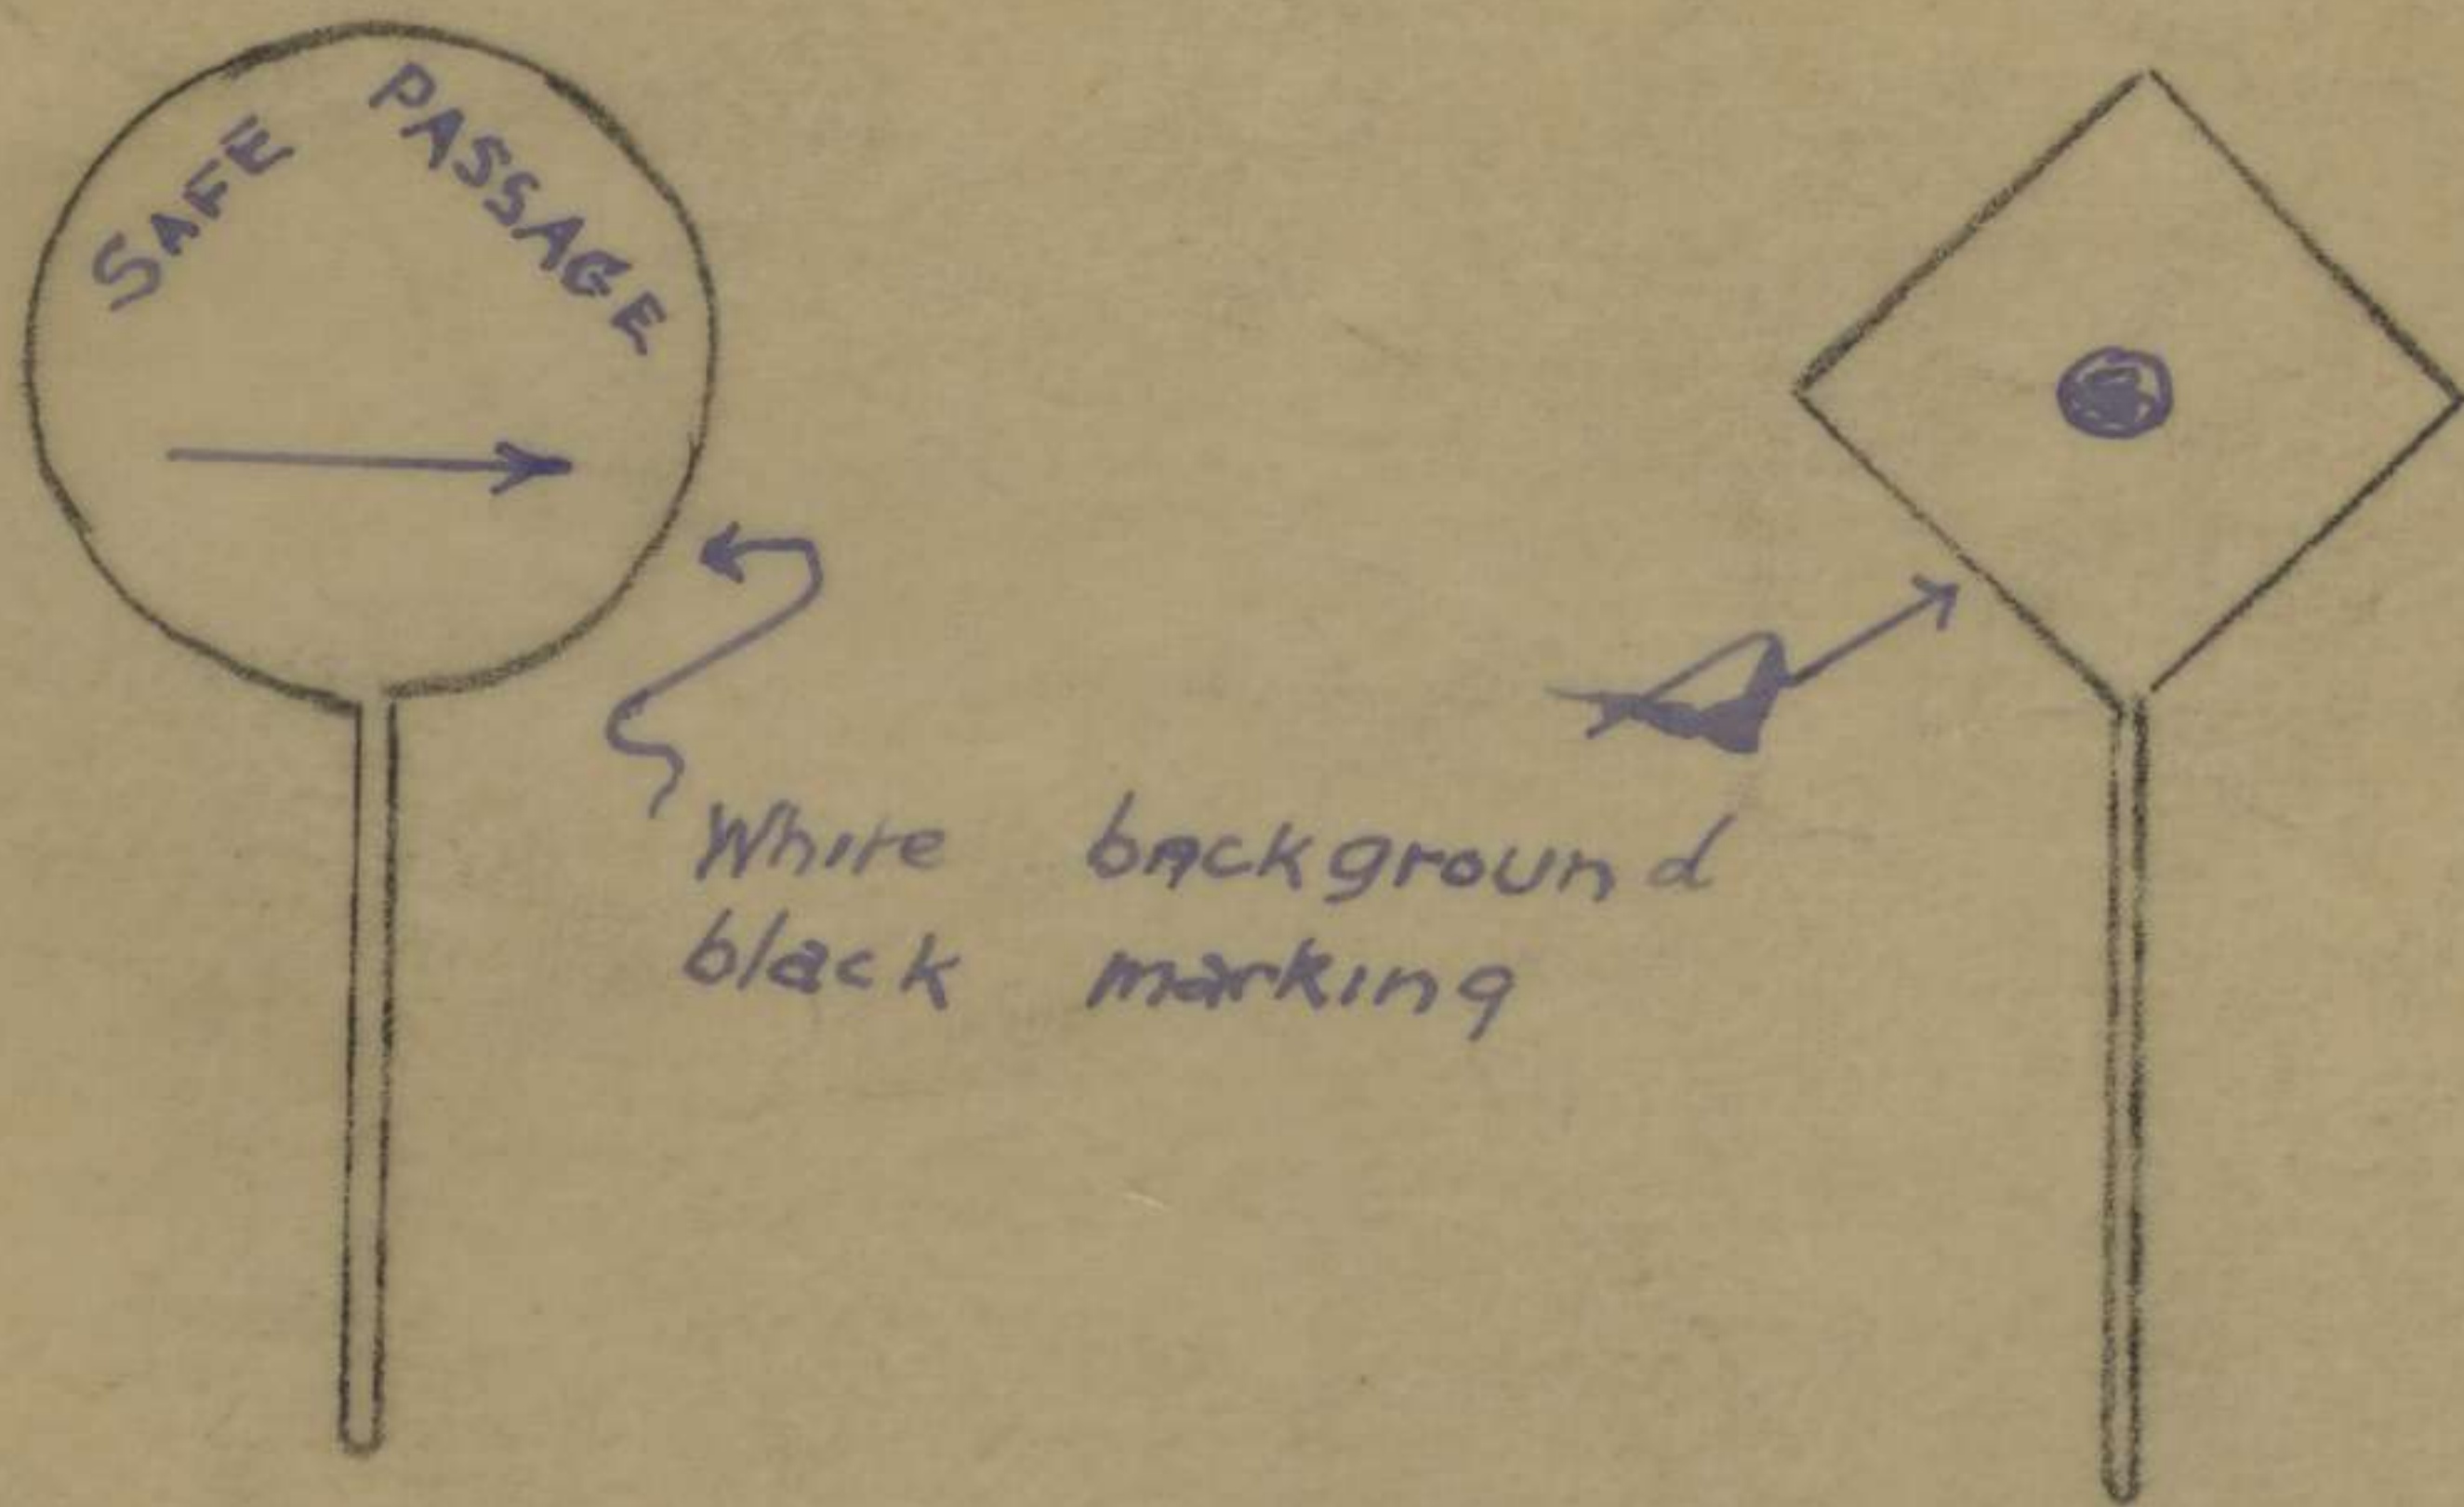 SAFE PASSAGE
White background
black marking